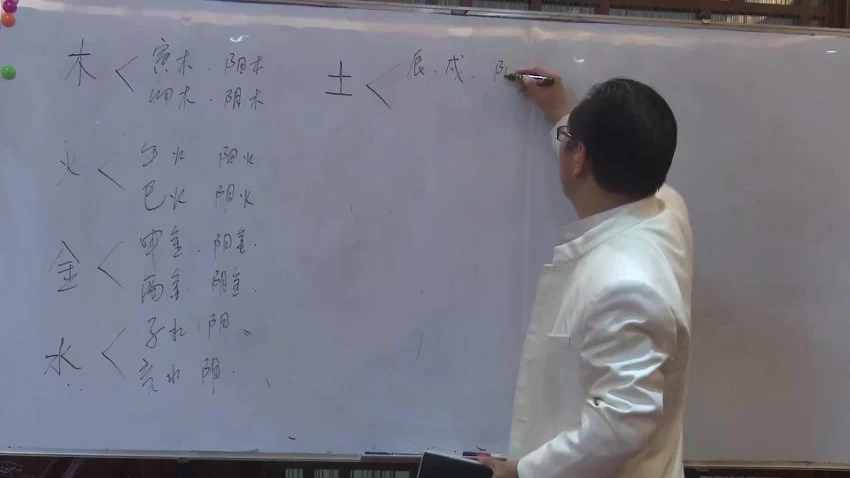 木 < 寅木 . 阳木
卯木 . 阴木
火 < 午火 阳火
巳火 阴火
金 < 申金 . 阳金 .
酉金 阴金 .
水 < 子水 阳 、
亥水 阴 .
土 < 辰 . 戌 .